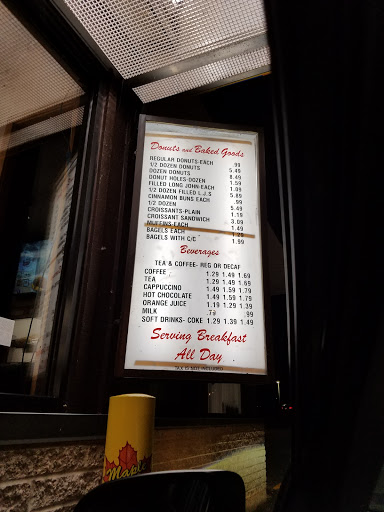 Donuts and Baked Goods
REGULAR DONUTS-EACH .99
1/2 DOZEN DONUTS 5.49
DOZEN DONUTS 8.49
DONUT HOLES-DOZEN 1.59
FILLED LONG JOHN-EACH 1.09
1/2 DOZEN FILLED L.J.S 5.89
CINNAMON BUNS EACH .99
1/2 DOZEN 5.49
CROISSANTS-PLAIN 1.19
CROISSANT SANDWICH 3.09
MUFFINS-EACH 1.49
BAGELS EACH
BAGELS WITH C/C 1.99
Beverages
TEA & COFFEE- REG OR DECAF
COFFEE 1.29 1.49 1.69
TEA 1.29 1.49 1.69
CAPPUCCINO 1.49 1.59 1.79
HOT CHOCOLATE 1.49 1.59 1.79
ORANGE JUICE 1.19 1.29 1.39
MILK .79 .99
SOFT DRINKS- COKE 1.29 1.39 1.49
Serving Breakfast
All Day
TAX IS NOT INCLUDED
Maple